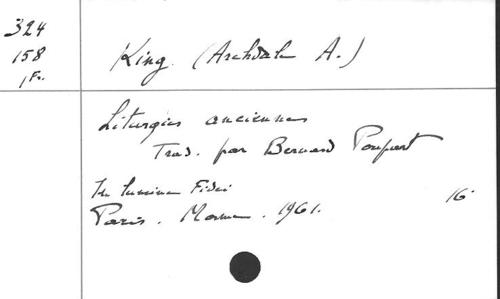 324
158
1 Fr.
King. (Archdale A.)
Liturgies anciennes
Trad. par Bernard Poupart
In lumine Fidei
Paris. Mame. 1961.
16°